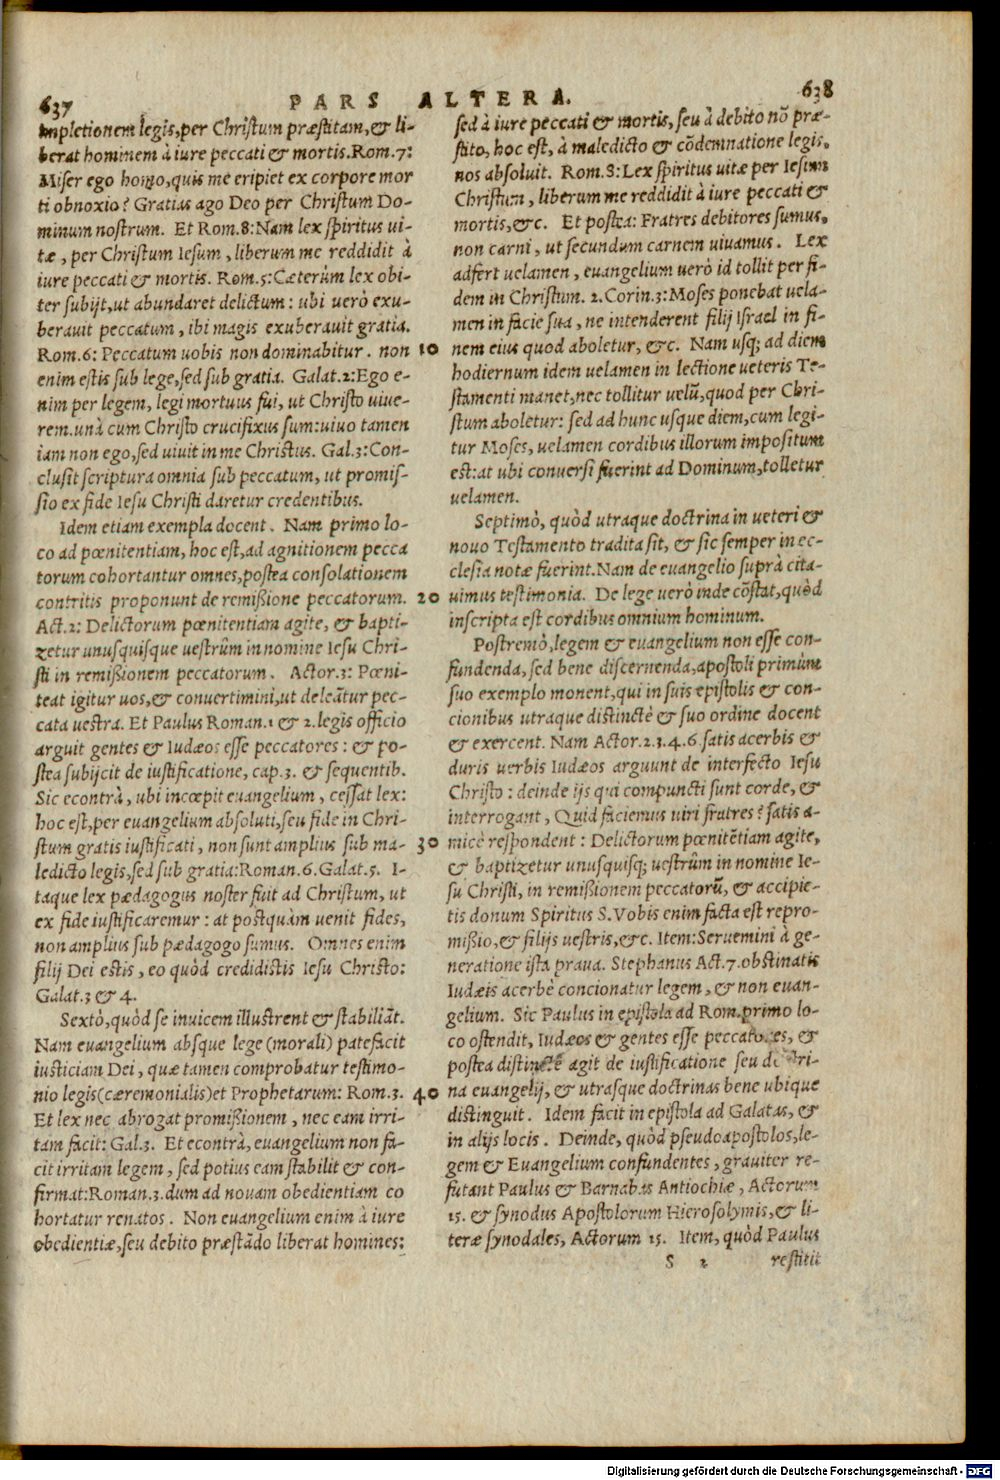 637
PARS ALTERA.
638
impletionem legis,per Christum præstitam,& li-
berat hominem à iure peccati & mortis.Rom.7:
Miser ego homo,quis me eripiet ex corpore mor
ti obnoxio? Gratias ago Deo per Christum Do-
minum nostrum. Et Rom.8:Nam lex spiritus ui-
tæ, per Christum Iesum, liberum me reddidit à
iure peccati & mortis. Rom.5:Cæterùm lex obi-
ter subijt,ut abundaret delictum: ubi uerò exu-
berauit peccatum, ibi magis exuberauit gratia.
Rom.6: Peccatum uobis non dominabitur. non
enim estis sub lege,sed sub gratia. Galat.2:Ego e-
nim per legem, legi mortuus fui, ut Christo uiue-
rem.unà cum Christo crucifixus sum:uiuo tamen
iam non ego,sed uiuit in me Christus. Gal.3:Con-
clusit scriptura omnia sub peccatum, ut promis-
sio ex fide Iesu Christi daretur credentibus.
Idem etiam exempla docent. Nam primo lo-
co ad pœnitentiam, hoc est,ad agnitionem pecca
torum cohortantur omnes,postea consolationem
contritis proponunt de remißione peccatorum.
Act.2: Delictorum pœnitentiam agite, & bapti-
zetur unusquisque uestrûm in nomine Iesu Chri-
sti in remißionem peccatorum. Actor.3: Pœni-
teat igitur uos,& conuertimini,ut deleātur pec-
cata uestra. Et Paulus Roman.1 & 2.legis officio
arguit gentes & Iudæos esse peccatores: & po-
stea subijcit de iustificatione, cap.3. & sequentib.
Sic econtrà, ubi incœpit euangelium, cessat lex:
hoc est,per euangelium absoluti,seu fide in Chri-
stum gratis iustificati, non sunt amplius sub ma-
ledicto legis,sed sub gratia:Roman.6.Galat.5. I-
taque lex pædagogus noster fuit ad Christum, ut
ex fide iustificaremur: at postquàm uenit fides,
non amplius sub pædagogo sumus. Omnes enim
filij Dei estis, eo quòd credidistis Iesu Christo:
Galat.3 & 4.
Sextò,quòd se inuicem illustrent & stabiliāt.
Nam euangelium absque lege (morali) patefacit
iusticiam Dei, quæ tamen comprobatur testimo-
nio legis(cæremonialis)et Prophetarum: Rom.3.
Et lex nec abrogat promißionem, nec eam irri-
tam facit: Gal.3. Et econtrà, euangelium non fa-
cit irritam legem, sed potius eam stabilit & con-
firmat:Roman.3.dum ad nouam obedientiam co
hortatur renatos. Non euangelium enim à iure
obedientiæ,seu debito præstādo liberat homines:
10
20
30
40
sed à iure peccati & mortis, seu à debito nō præ-
stito, hoc est, à maledicto & cōdemnatione legis,
nos absoluit. Rom.8:Lex spiritus uitæ per Iesum
Christum, liberum me reddidit à iure peccati &
mortis,&c. Et postea: Fratres debitores sumus,
non carni, ut secundum carnem uiuamus. Lex
adfert uelamen, euangelium uerò id tollit per fi-
dem in Christum. 2.Corin.3:Moses ponebat uela-
men in facie sua, ne intenderent filij Israel in fi-
nem eius quod aboletur, &c. Nam usq; ad diem
hodiernum idem uelamen in lectione ueteris Te-
stamenti manet,nec tollitur uelū,quod per Chri-
stum aboletur: sed ad hunc usque diem,cum legi-
tur Moses, uelamen cordibus illorum impositum
est:at ubi conuersi fuerint ad Dominum,tolletur
uelamen.
Septimò, quòd utraque doctrina in ueteri &
nouo Testamento tradita sit, & sic semper in ec-
clesia notæ fuerint.Nam de euangelio suprà cita-
uimus testimonia. De lege uerò inde cōstat,quòd
inscripta est cordibus omnium hominum.
Postremò,legem & euangelium non esse con-
fundenda, sed bene discernenda,apostoli primùm
suo exemplo monent,qui in suis epistolis & con-
cionibus utraque distinctè & suo ordine docent
& exercent. Nam Actor.2.3.4.6 satis acerbis &
duris uerbis Iudæos arguunt de interfecto Iesu
Christo: deinde ijs qui compuncti sunt corde, &
interrogant, Quid faciemus uiri fratres? satis a-
micè respondent: Delictorum pœnitētiam agite,
& baptizetur unusquisq; uestrûm in nomine Ie-
su Christi, in remißionem peccatorū, & accipie-
tis donum Spiritus S.Vobis enim facta est repro-
mißio,& filijs uestris,&c. Item:Seruemini à ge-
neratione ista praua. Stephanus Act.7.obstinatis
Iudæis acerbè concionatur legem, & non euan-
gelium. Sic Paulus in epistola ad Rom.primo lo-
co ostendit, Iudæos & gentes esse peccatores, &
postea distinctè agit de iustificatione seu doctri-
na euangelij, & utrasque doctrinas bene ubique
distinguit. Idem facit in epistola ad Galatas, &
in alijs locis. Deinde, quòd pseudoapostolos,le-
gem & Euangelium confundentes, grauiter re-
futant Paulus & Barnabas Antiochiæ, Actorum
15. & synodus Apostolorum Hierosolymis,& li-
teræ synodales, Actorum 15. Item, quòd Paulus
S 2
restitit
Digitalisierung gefördert durch die Deutsche Forschungsgemeinschaft - DFG